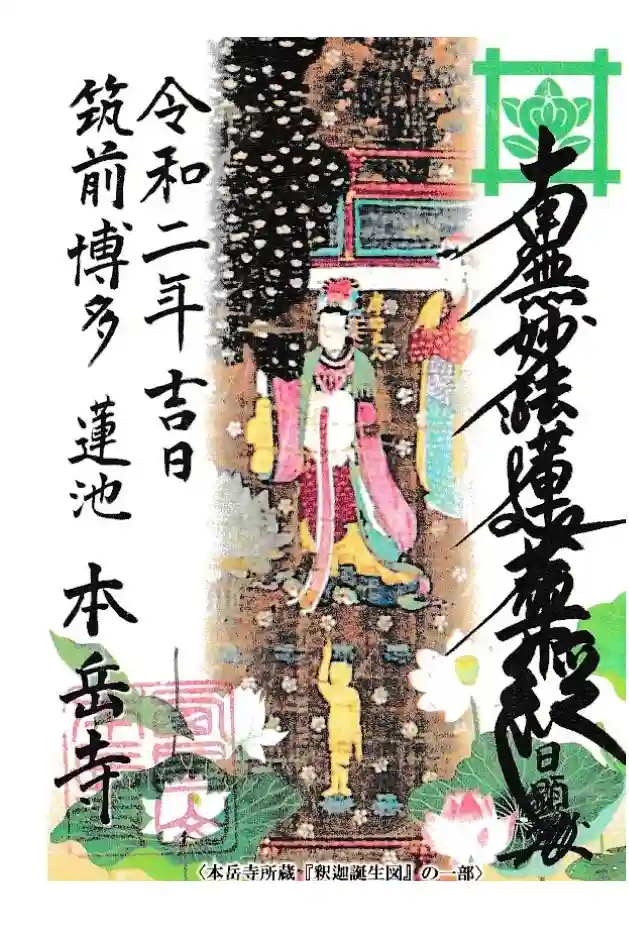 南無妙法蓮華経
日顕
令和二年吉日
筑前博多 蓮池 本岳寺
〈本岳寺所蔵『釈迦誕生図』の一部〉